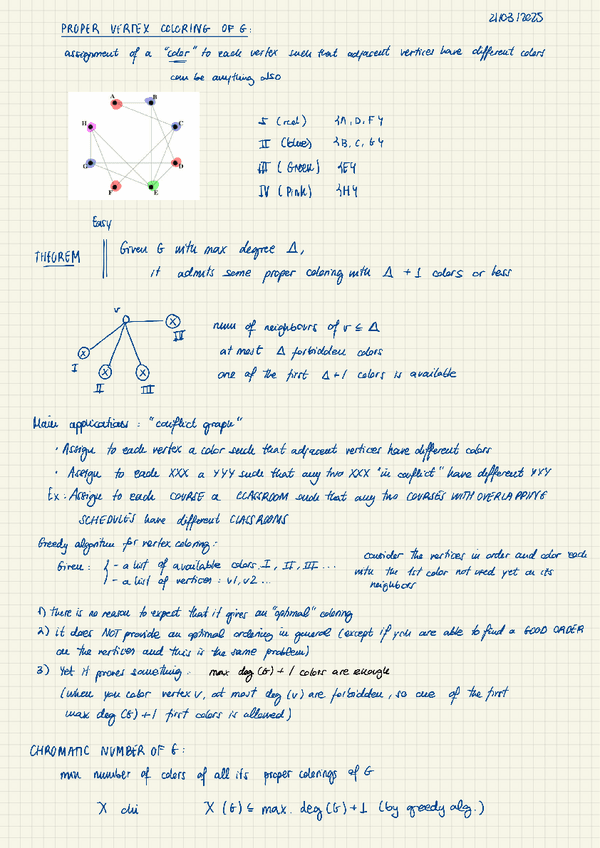 21/03/2025
PROPER VERTEX COLORING OF G:
assignment of a "color" to each vertex such that adjacent vertices have different colors
can be anything also
A
B
H
C
G
D
F
E
I (red) {A, D, F}
II (blue) {B, C, G}
III (Green) {E}
IV (Pink) {H}
Easy
THEOREM
Given G with max degree Δ,
it admits some proper coloring with Δ + 1 colors or less
v
I
II
III
IV
num of neighbours of v ≤ Δ
at most Δ forbidden colors
one of the first Δ+1 colors is available
Main applications: "conflict graph"
· Assign to each vertex a color such that adjacent vertices have different colors
· Assign to each XXX a YYY such that any two XXX "in conflict" have different YYY
Ex: Assign to each COURSE a CLASSROOM such that any two COURSES WITH OVERLAPPING
SCHEDULES have different CLASSROOMS
Greedy algorithm for vertex coloring:
Given: { - a list of available colors I, II, III ...
- a list of vertices: v1, v2 ...
consider the vertices in order and color each
with the 1st color not used yet on its
neighbors
1) there is no reason to expect that it gives an "optimal" coloring
2) it does NOT provide an optimal ordering in general (except if you are able to find a GOOD ORDER
on the vertices and this is the same problem)
3) Yet it proves something: max deg(G) + 1 colors are enough
(when you color vertex v, at most deg(v) are forbidden, so one of the first
max deg(G)+1 first colors is allowed)
CHROMATIC NUMBER OF G:
min number of colors of all its proper colorings of G
X chi
X(G) ≤ max. deg(G)+1 (by greedy alg.)